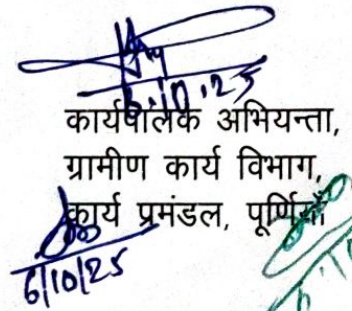 6.10.25
कार्यपालक अभियन्ता,
ग्रामीण कार्य विभाग,
कार्य प्रमंडल, पूर्णियाँ
6/10/25